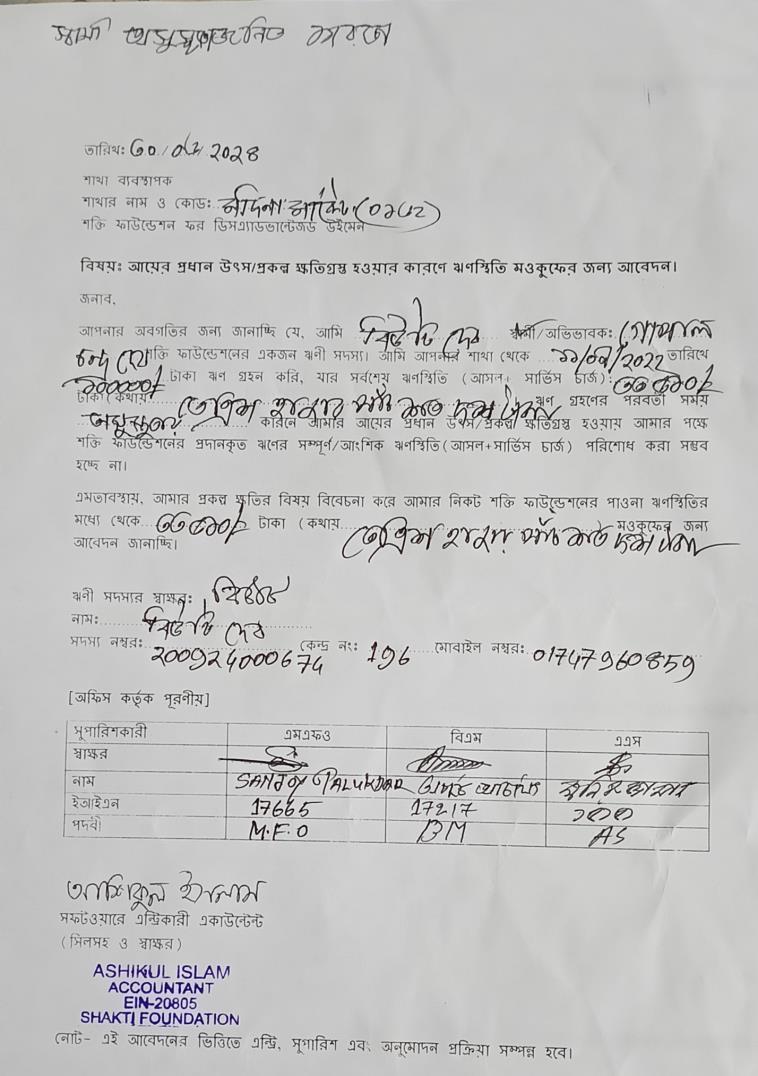 স্বামী অসুস্থতাজনিত কারণে
তারিখ: ৩০/ /২০২৪
শাখা ব্যবস্থাপক
শাখার নাম ও কোড: মদিনা মার্কেট (০১৫২)
শক্তি ফাউন্ডেশন ফর ডিসএ্যাডভান্টেজড উইমেন
বিষয়: আয়ের প্রধান উৎস/প্রকল্প ক্ষতিগ্রস্ত হওয়ার কারণে ঋণস্থিতি মওকুফের জন্য আবেদন।
জনাব,
আপনার অবগতির জন্য জানাচ্ছি যে, আমি বিউটি দেব স্বামী/অভিভাবক: গোপাল
চন্দ্র দেব শক্তি ফাউন্ডেশনের একজন ঋণী সদস্য। আমি আপনার শাখা থেকে /২০২২ তারিখে
১০০০০০/ টাকা ঋণ গ্রহন করি, যার সর্বশেষ ঋণস্থিতি (আসল+ সার্ভিস চার্জ): ৩৩৫১০/
টাকা (কথায় তেত্রিশ হাজার পাঁচ শত দশ টাকা ঋণ গ্রহণের পরবর্তী সময়
অসুস্থতায় কারনে আমার আয়ের প্রধান উৎস/প্রকল্প ক্ষতিগ্রস্ত হওয়ায় আমার পক্ষে
শক্তি ফাউন্ডেশনের প্রদানকৃত ঋণের সম্পূর্ণ/আংশিক ঋণস্থিতি(আসল+সার্ভিস চার্জ) পরিশোধ করা সম্ভব
হচ্ছে না।
এমতাবস্থায়, আমার প্রকল্প ক্ষতির বিষয় বিবেচনা করে আমার নিকট শক্তি ফাউন্ডেশনের পাওনা ঋণস্থিতির
মধ্যে থেকে ৩৩৫১০/ টাকা (কথায় তেত্রিশ হাজার পাঁচ শত দশ টাকা মওকুফের জন্য
আবেদন জানাচ্ছি।
ঋণী সদস্যর স্বাক্ষর: বিউটি
নাম: বিউটি দেব
সদস্য নম্বর: 200924000674 কেন্দ্র নং: 196 মোবাইল নম্বর: 01747960859
[অফিস কর্তৃক পূরণীয়]
সুপারিশকারী এমএফও বিএম এএস
স্বাক্ষর
নাম SANJOY TALUKDAR
ইআইএন 17665 17217
পদবী M.F.O BM AS
আশিকুল ইসলাম
সফটওয়ারে এন্ট্রিকারী একাউন্টেন্ট
(সিলসহ ও স্বাক্ষর)
ASHIKUL ISLAM
ACCOUNTANT
EIN-20805
SHAKTI FOUNDATION
নোট- এই আবেদনের ভিত্তিতে এন্ট্রি, সুপারিশ এবং অনুমোদন প্রক্রিয়া সম্পন্ন হবে।